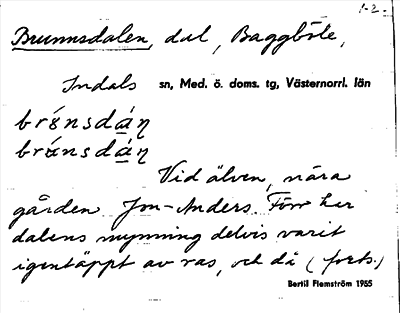 1-2.
Brunnsdalen, dal, Baggböle,
Indals sn, Med. ö. doms. tg, Västernorrl. län
brǿnsdáṇ
bránsdáṇ
Vid älven, nära
gården Jon-Anders. Förr har
dalens mynning delvis varit
igentäppt av ras, och då (forts.)
Bertil Flemström 1955